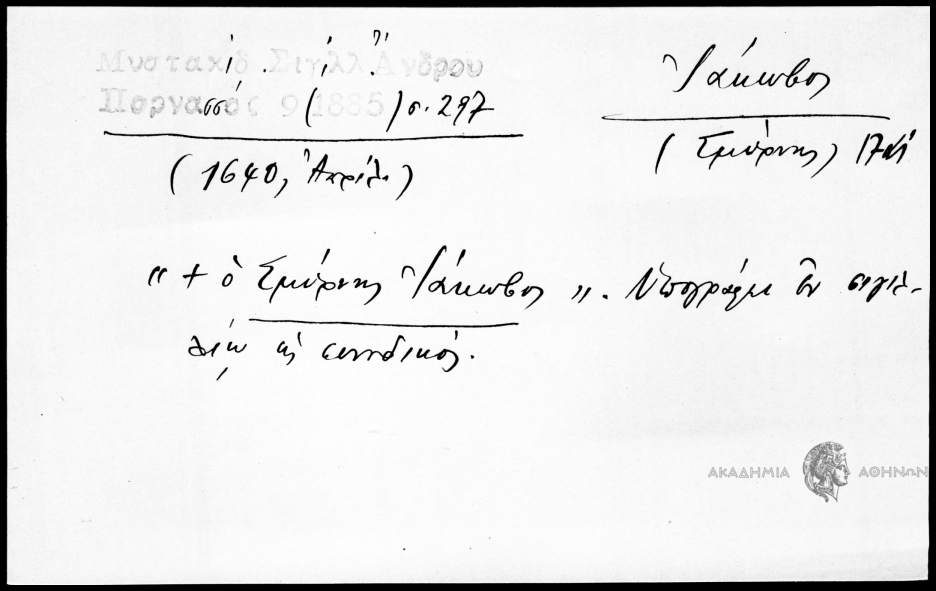 Μυστακίδ. Σιγιλλ. Ἄνδρου
Παρνασσός 9 (1885) σ. 297
(1640, Ἀπρίλ.)
Ἰάκωβος
(Σμύρνης) 17
" + ὁ Σμύρνης Ἰάκωβος ". Ὑπογράφει ἐν σιγιλ-
λίῳ ὡς συνοδικός.
ΑΚΑΔΗΜΙΑ ΑΘΗΝΩΝ